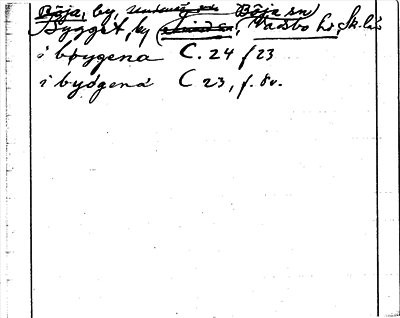 Böja, by, Böja sn
Bygget, by, Vadsbo hd, Sk. län
i bøygena C. 24 f 23
i bydgena C 23, f. 8v.